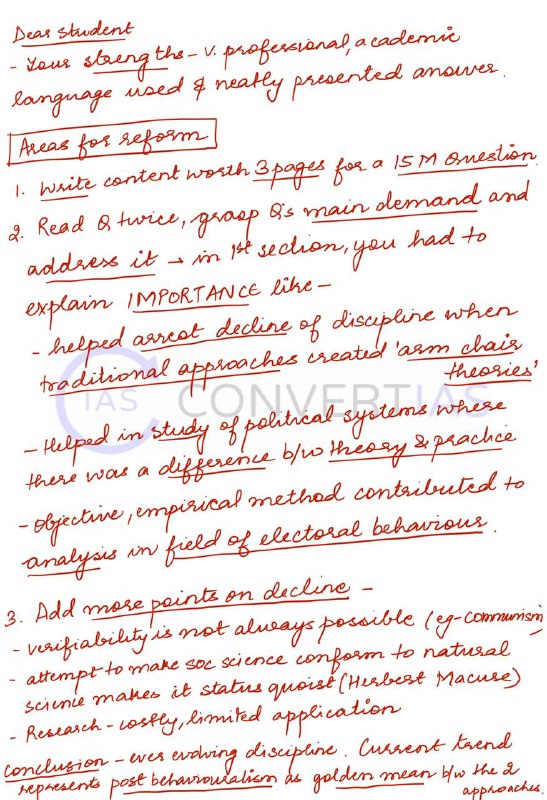 Dear Student
- Your strengths - v. professional, academic
language used & neatly presented answer.
Areas for reform
1. Write content worth 3 pages for a 15 M Question
2. Read Q twice, grasp Q's main demand and
address it → in 1st section, you had to
explain IMPORTANCE like -
- helped arrest decline of discipline when
traditional approaches created 'arm chair
theories'
IAS CONVERTIAS
- Helped in study of political systems where
there was a difference b/w theory & practice
- Objective, empirical method contributed to
analysis in field of electoral behaviour.
3. Add more points on decline -
- verifiability is not always possible (eg-communism)
- attempt to make soc science conform to natural
science makes it status quoist (Herbert Macuse)
- Research - costly, limited application
Conclusion - ever evolving discipline. Current trend
represents post behaviouralism as golden mean b/w the 2
approaches.